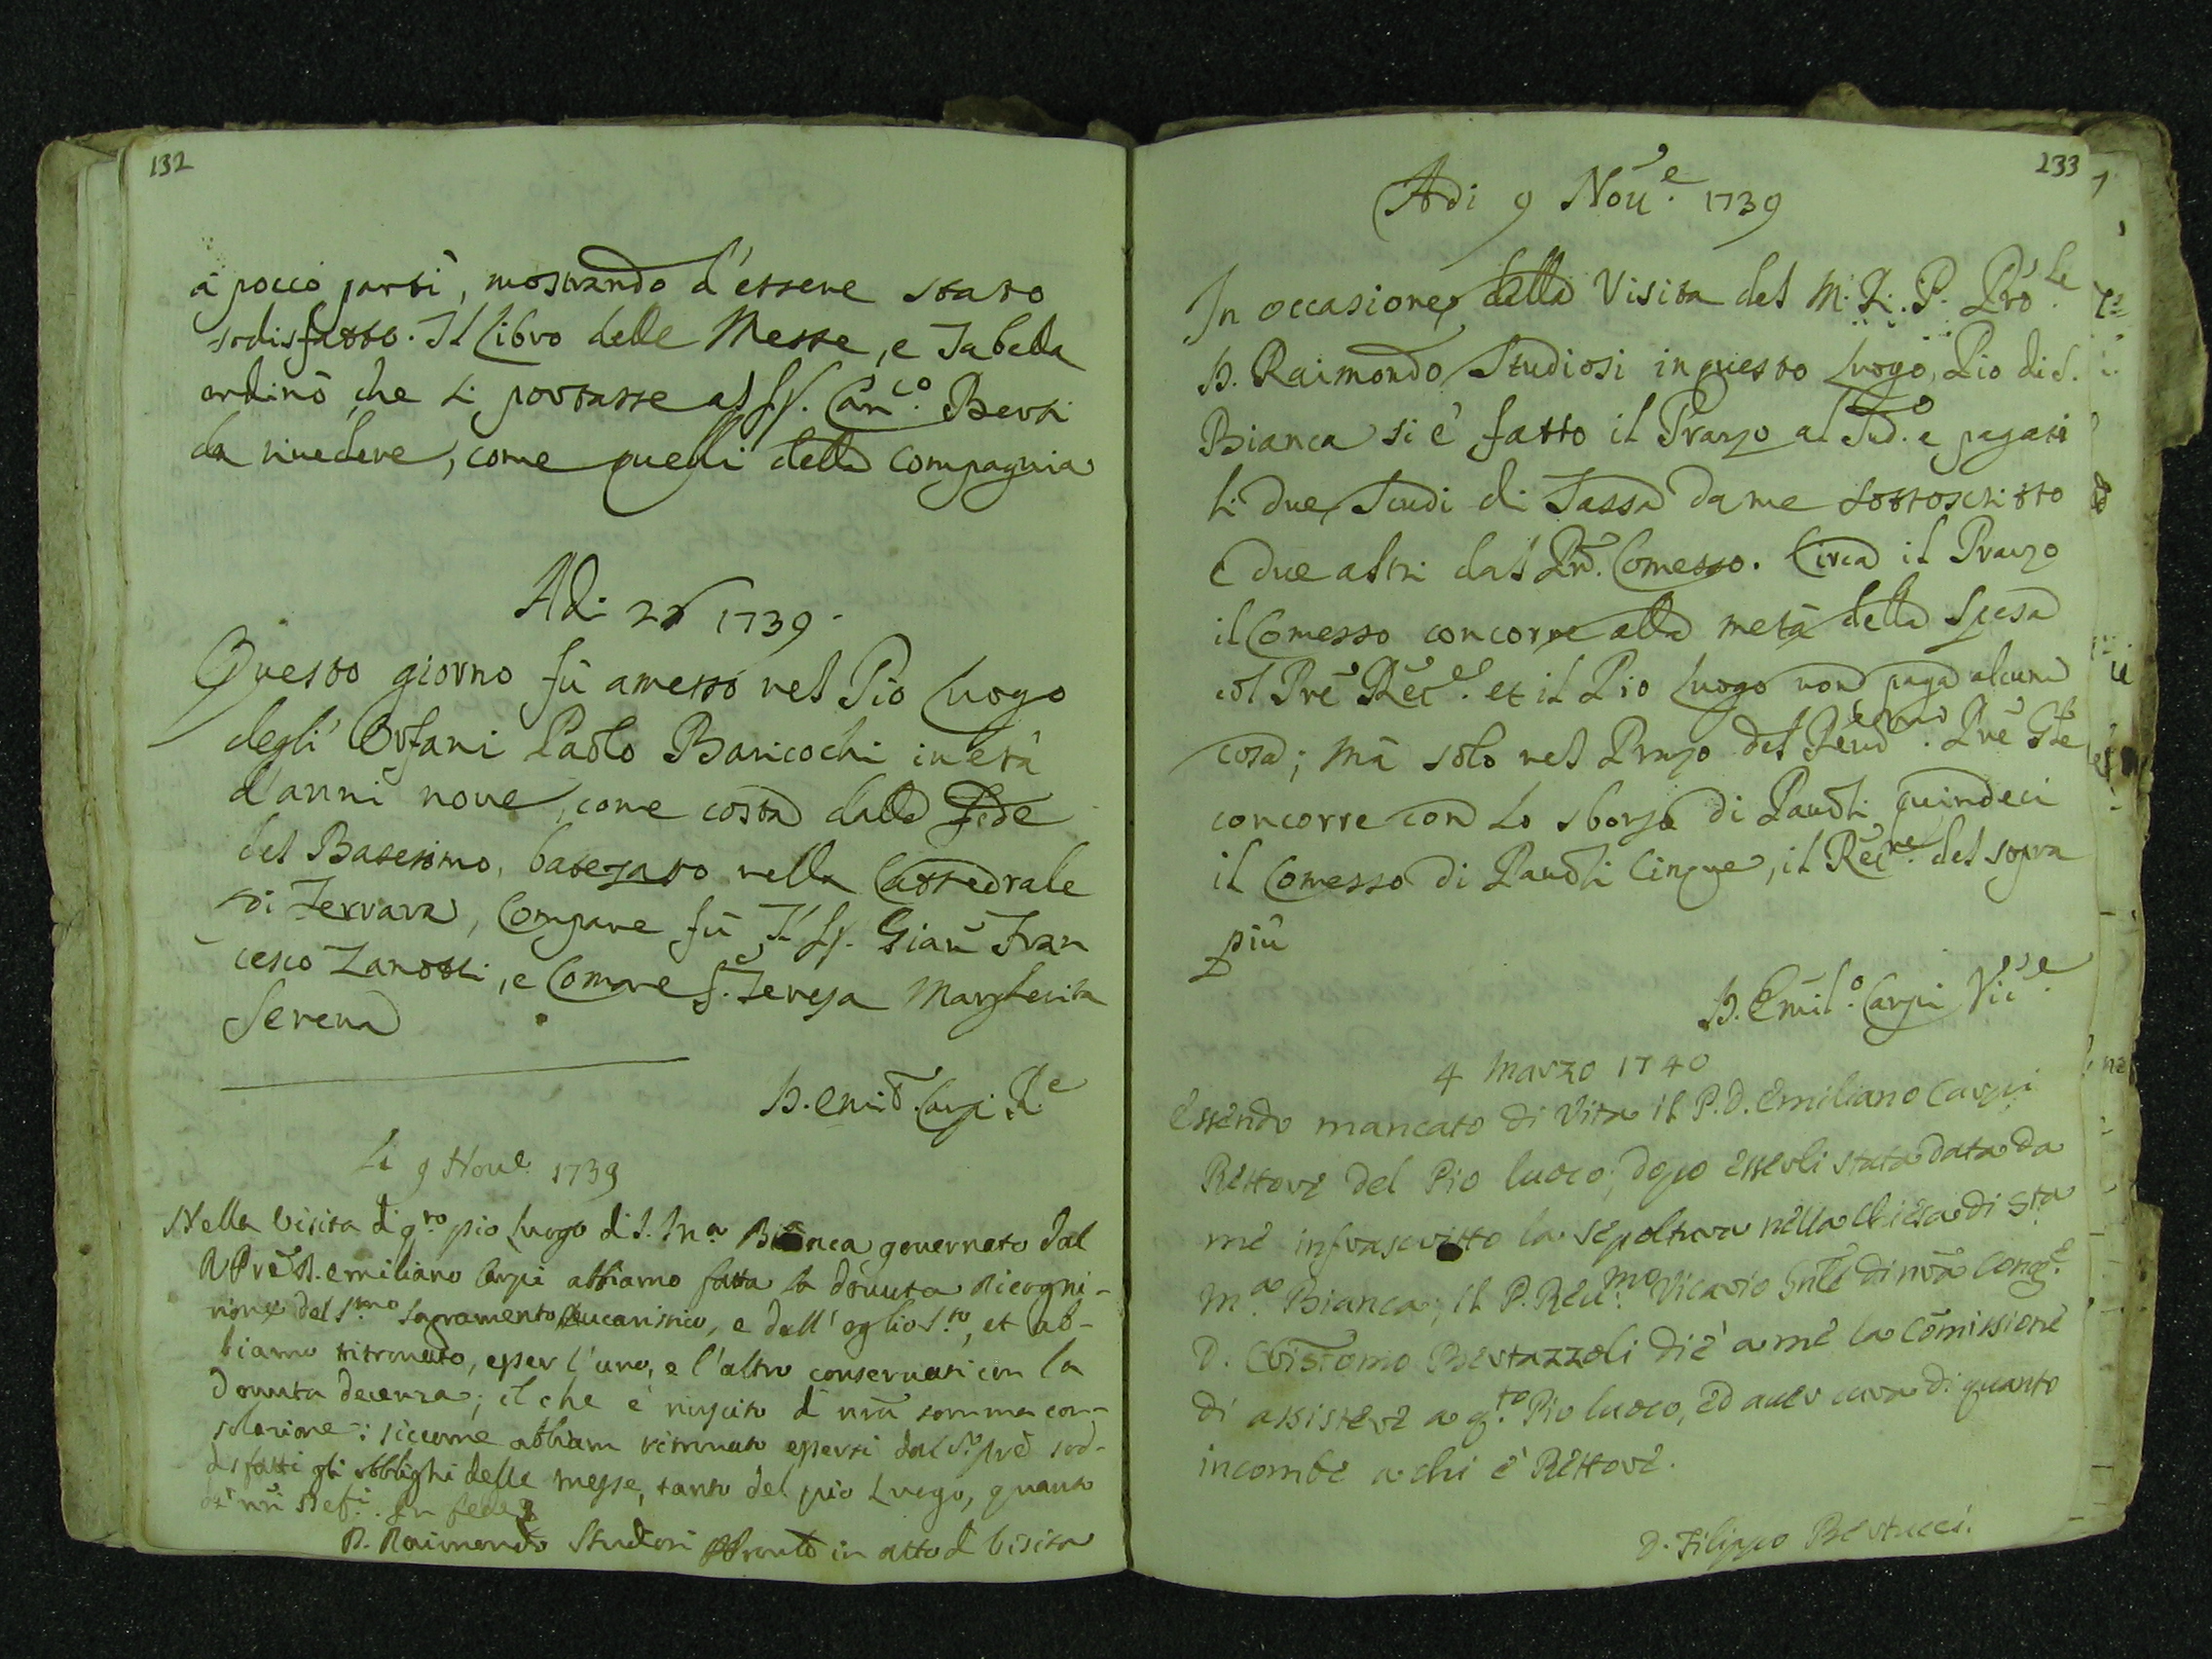 132
à pocco partì, mostrando d'essere stato
sodisfatto. Il Libro delle Messe, e Tabella
ordinò che si portasse al Sig. Can.co Berti
da rivedere, come quelli della Compagnia
Adi 1739.
Questo giorno fù amesso nel Pio Luogo
degli Orfani Paolo Baricochi in età
d'anni nove, come costa dalla Fede
del Batesimo, batezato nella Cattedrale
di Ferrara, Compare fù Il Sig. Gian Fran
cesco Zanotti, e Comare S. Teresa Margherita
Serena
D. Emil.o Carpi R.e
Li 9 Nov.e 1739
Nella visita di q.to pio Luogo di S. M.a Bianca governato dal
R Prē D. emiliano Carpi abbiamo fatta la dovuta ricogni-
zione del S.mo Sagramento eucaristico, e dell'oglio S.to, et ab-
biamo ritrovato, esser l'uno, e l'altro conservati con la
dovuta decenza; il che è riuscito di nrā somma con-
solazione: siccome abbiam ritrovato essersi dal S.o prē sod-
disfatti gli obblighi delle messe, tanto del pio Luogo, quanto
nri In fede
D. Raimondo Studiosi in atto di visita
133
Adi 9 Nov.e 1739
In occasione della Visita del M. R. P. Pro.le
D. Raimondo Studiosi in questo Luogo Pio di S.
Bianca si è fatto il Pranzo al Sud.o e pagati
li due Scudi di Tassa da me sottoscritto
e due altri dal Comesso. Circa il Pranzo
il Comesso concorre alla metà della Spesa
col Prē Rec.e et il Pio Luogo non paga alcuna
cosa; mà solo nel Pranzo del Prē Gle
concorre con lo sborso di Paoli quindeci
il Comesso di Paoli Cinque, il Rec.re del sopra
più
D. Emil.o Carpi Vic.e
4 Marzo 1740
Essendo mancato di Vita il P. D. Emiliano Carpi
Rettore del Pio luoco; dopo esserli stata data da
me infrascritto la sepoltura nella Chiesa di S.ta
M.a Bianca; il P. Rev.mo Vicario Gnle di nrā Cong.e
D. Cristomo Bertazzoli diè a me la Comissione
di assistere a q.to Pio luoco, ed aver cura di quanto
incombe a chi è Rettore.
D. Filippo Bertucci.